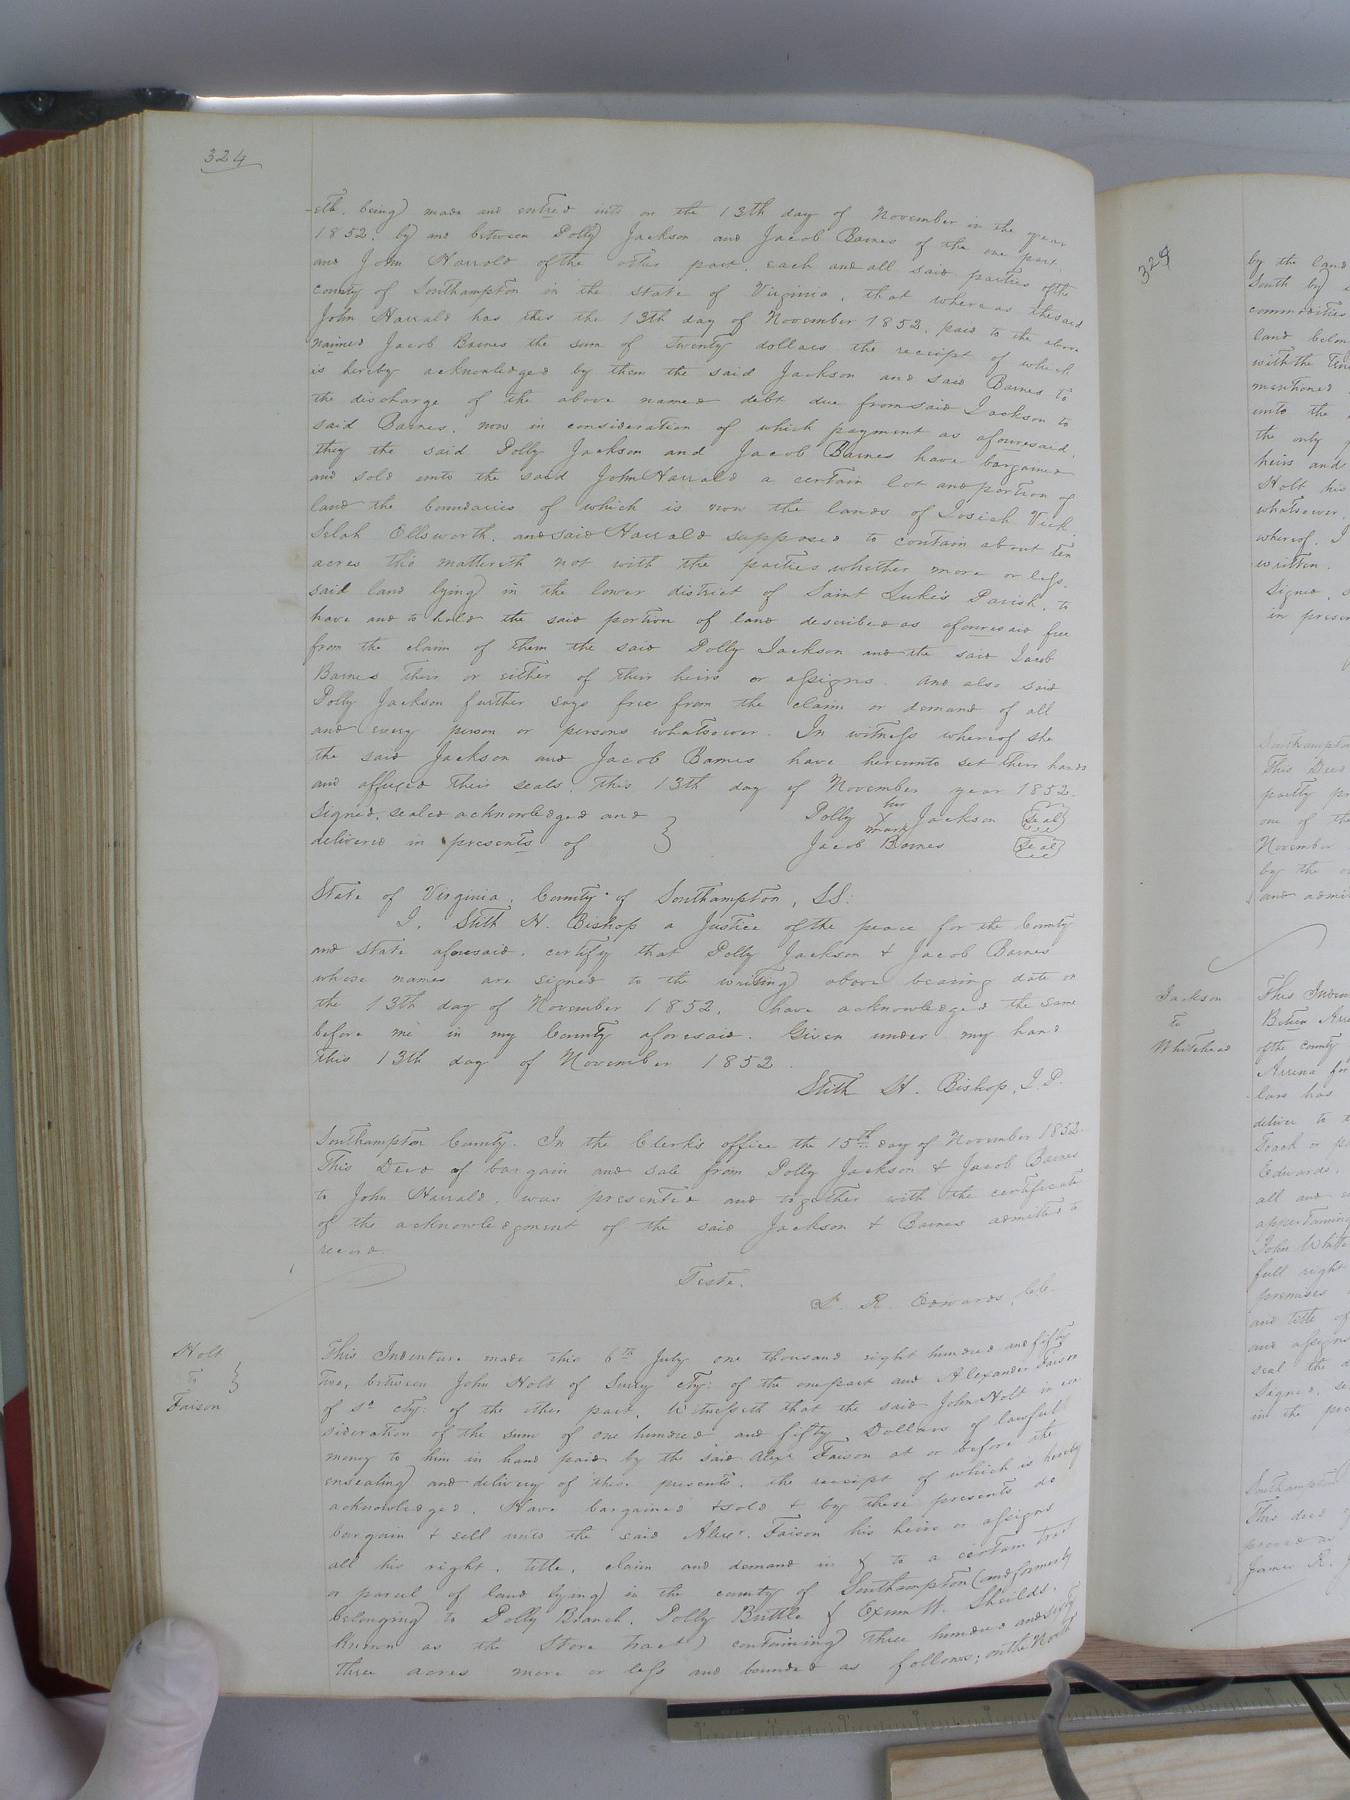 324
-eth, being made and entred into on the 13th day of November in the year
1852, by and between Polly Jackson and Jacob Barnes of the one part
and John Harrald of the other part, each and all said parties of the
county of Southampton in the state of Virginia, that whereas the said
John Harrald has this the 13th day of November 1852, paid to the above
named Jacob Barnes the sum of twenty dollars the receipt of which
is hereby acknowledged by them the said Jackson and said Barnes to
the discharge of the above named debt due from said Jackson to
said Barnes, now in consideration of which payment as afouresaid,
they the said Polly Jackson and Jacob Barnes have bargained
and sold unto the said John Harrald a certain lot and portion of
land the boundaries of which is now the lands of Josiah Vick
Selah Ellsworth, and said Harrald supposed to contain about ten
acres tho mattereth not with the parties whether more or less,
said land lying in the lower district of Saint Luke's Parish, to
have and to hold the said portion of land described as afouresaid free
from the claim of them the said Polly Jackson and the said Jacob
Barnes their or either of their heirs or assigns. And also said
Polly Jackson further says free from the claim or demand of all
and every person or persons whatsoever. In witness whereof she
the said Jackson and Jacob Barnes have hereunto set their hands
and affixed their seals, this 13th day of November year 1852.
Signed, sealed acknowledged and } Polly her X mark Jackson Seal
delivered in presents of Jacob Barnes Seal
State of Virginia, County of Southampton, SS:
I, Stith H. Bishop a Justice of the peace for the County
and State aforesaid, certify that Polly Jackson & Jacob Barnes
whose names are signed to the writing above bearing date on
the 13th day of November 1852, have acknowledged the same
before me in my County aforesaid. Given under my hand
this 13th day of November 1852.
Stith H. Bishop, J.P.
Southampton County. In the Clerk's office the 15th day of November 1852.
This Deed of bargain and sale from Polly Jackson & Jacob Barnes
to John Harrald, was presented and together with the certificate
of the acknowledgment of the said Jackson & Barnes admitted to
record.
Teste,
L. R. Edwards, Cle.
Holt
to }
Faison
This Indenture made this 6th July one thousand eight hundred and fifty
two, between John Holt of Surry cty: of the one part and Alexander Faison
of sd cty: of the other part, Witnesseth that the said John Holt in con
sideration of the sum of one hundred and fifty Dollars of lawful
money to him in hand paid by the said Alexr Faison at or before the
ensealing and delivery of these presents, the receipt of which is hereby
acknowledged, Have bargained & sold & by these presents do
bargain & sell unto the said Alexr. Faison his heirs or assigns
all his right, title, claim and demand in & to a certain tract
or parcel of land lying in the county of Southampton (and formerly
belonging to Polly Branch, Polly Buttle & Exum W. Sheilds,
known as the Store tract) containing three hundred and sixty
three acres more or less and bounded as follows; on the North
by the land
South by
commodities
land belon
with the
mentioned
unto the
the only
heirs and
Holt his
whatsoever,
whereof, I
written.
Signed, s
in presen
Southampton
This Deed
partly pr
one of th
November
by the
and admi
Jackson
to
Whitehead
This Inden
of the county
lars has
deliver to t
Edwards,
all and
appertaining
John White
full right
premises
and title of
and assigns
seal the d
Signed, se
in the pre
Southampton
This deed
James R.